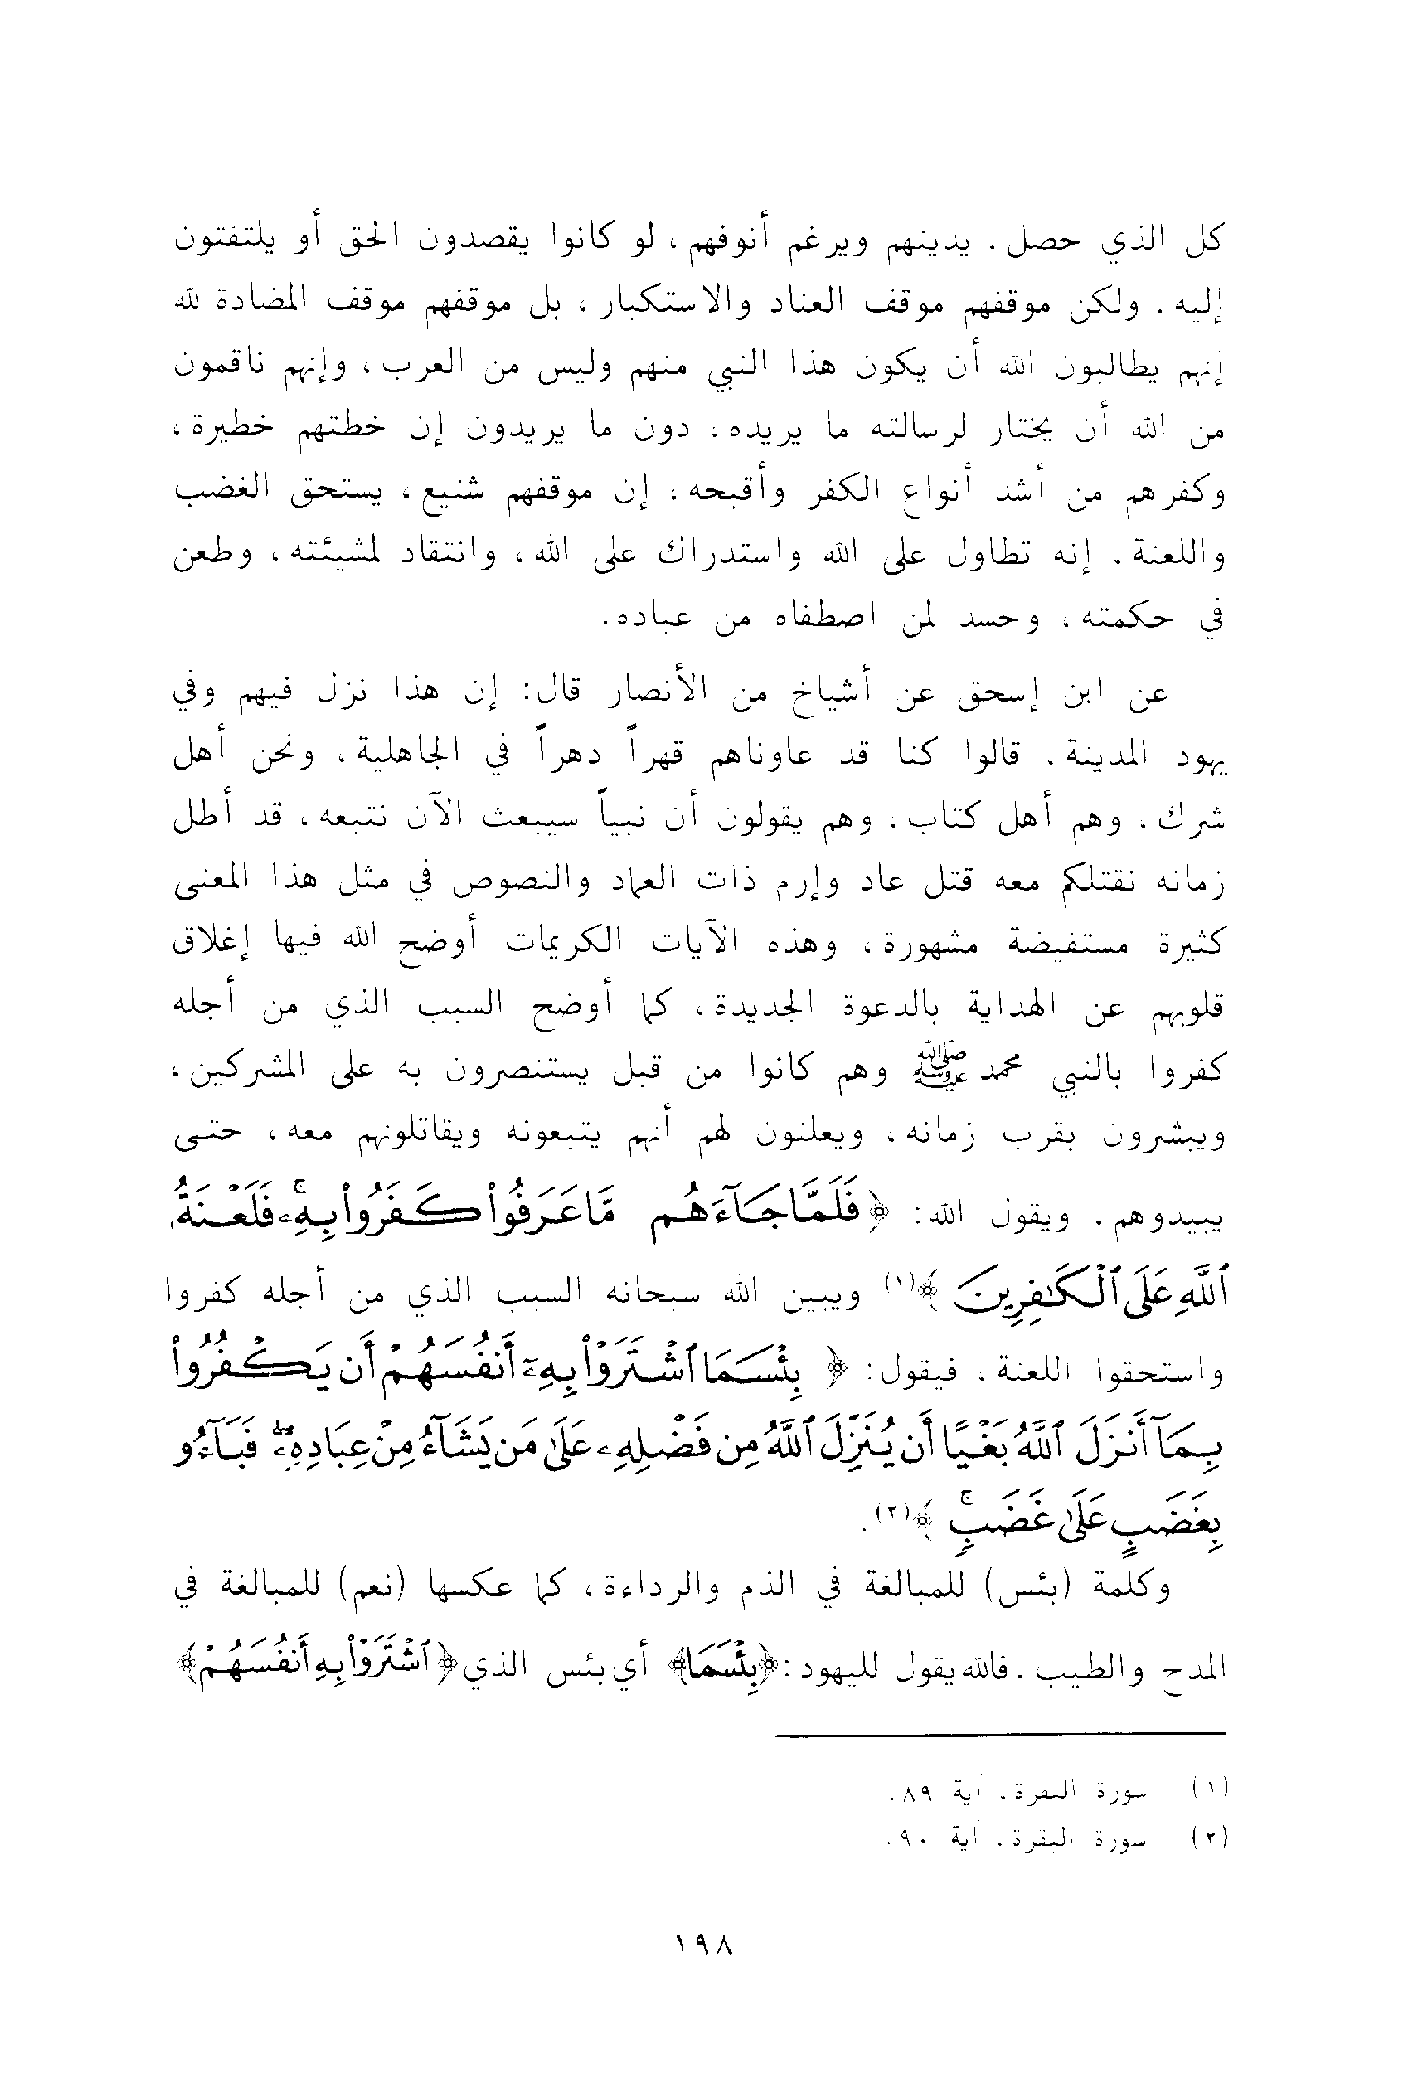 كل الذي حصل. يدينهم ويرغم أنوفهم، لو كانوا يقصدون الحق أو يلتفتون
إليه. ولكن موقفهم موقف العناد والاستكبار، بل موقفهم موقف المضادة لله
إنهم يطالبون الله أن يكون هذا النبي منهم وليس من العرب، وإنهم ناقمون
من الله أن يختار لرسالته ما يريده، دون ما يريدون إن خطتهم خطيرة،
وكفرهم من أشد أنواع الكفر وأقبحه، إن موقفهم شنيع، يستحق الغضب
واللعنة. إنه تطاول على الله واستدراك على الله، وانتقاد لمشيئته، وطعن
في حكمته، وحسد لمن اصطفاه من عباده.
عن ابن إسحق عن أشياخ من الأنصار قال: إن هذا نزل فيهم وفي
يهود المدينة. قالوا كنا قد عاوناهم قهراً دهراً في الجاهلية، ونحن أهل
شرك. وهم أهل كتاب. وهم يقولون أن نبياً سيبعث الآن نتبعه، قد أطل
زمانه نقتلكم معه قتل عاد وإرم ذات العماد والنصوص في مثل هذا المعنى
كثيرة مستفيضة مشهورة، وهذه الآيات الكريمات أوضح الله فيها إغلاق
قلوبهم عن الهداية بالدعوة الجديدة، كما أوضح السبب الذي من أجله
كفروا بالنبي محمد ﷺ وهم كانوا من قبل يستنصرون به على المشركين،
ويبشرون بقرب زمانه، ويعلنون لهم أنهم يتبعونه ويقاتلونهم معه، حتى
يبيدوهم. ويقول الله: ﴿فَلَمَّا جَآءَهُم مَّا عَرَفُوا۟ كَفَرُوا۟ بِهِۦۚ فَلَعْنَةُ
ٱللَّهِ عَلَى ٱلْكَـٰفِرِينَ﴾(١) ويبين الله سبحانه السبب الذي من أجله كفروا
واستحقوا اللعنة، فيقول: ﴿بِئْسَمَا ٱشْتَرَوْا۟ بِهِۦٓ أَنفُسَهُمْ أَن يَكْفُرُوا۟
بِمَآ أَنزَلَ ٱللَّهُ بَغْيًا أَن يُنَزِّلَ ٱللَّهُ مِن فَضْلِهِۦ عَلَىٰ مَن يَشَآءُ مِنْ عِبَادِهِۦۖ فَبَآءُو
بِغَضَبٍ عَلَىٰ غَضَبٍۚ﴾(٢).
وكلمة (بئس) للمبالغة في الذم والرداءة، كما عكسها (نعم) للمبالغة في
المدح والطيب. فالله يقول لليهود: ﴿بِئْسَمَا﴾ أي بئس الذي ﴿ٱشْتَرَوْا۟ بِهِ أَنفُسَهُمْ﴾
(١) سورة البقرة. آية ٨٩.
(٢) سورة البقرة. آية ٩٠.
١٩٨